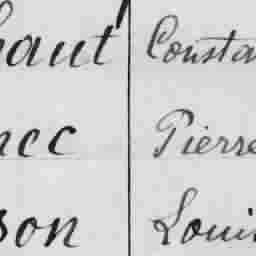 haut Consta
nec Pierre
son Louis